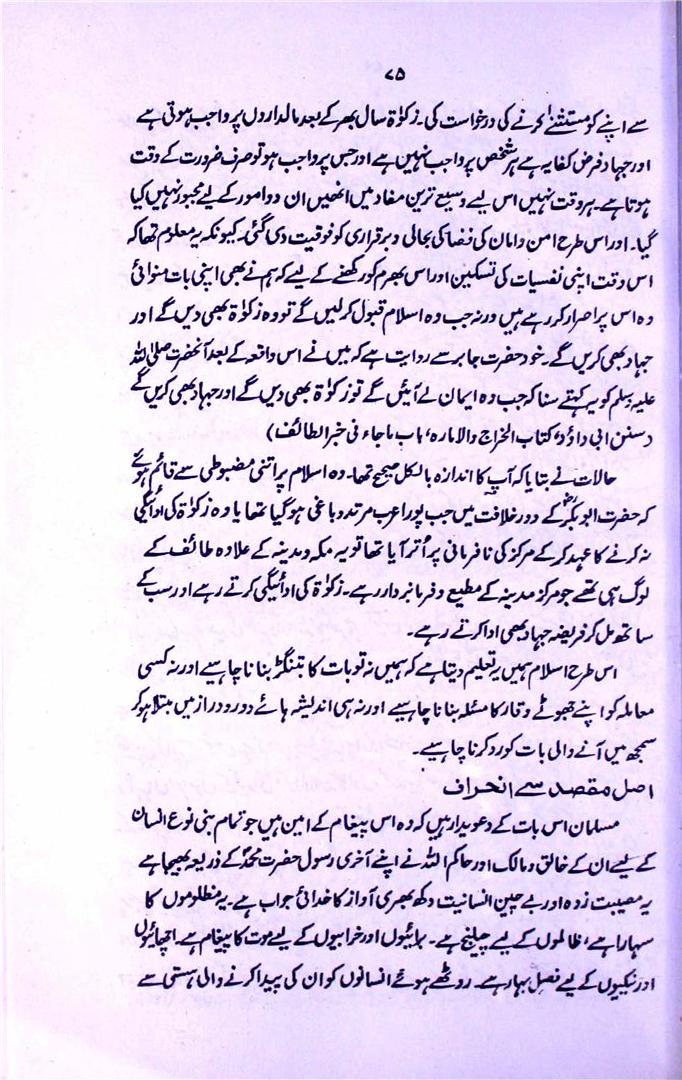 ۷۵
سے اپنے کو مستثنیٰ کرنے کی درخواست کی۔ زکوٰۃ سال بھر کے بعد مالداروں پر واجب ہوتی ہے
اور جہاد فرض کفایہ ہے ہر شخص پر واجب نہیں ہے اور جس پر واجب ہو تو صرف ضرورت کے وقت
ہوتا ہے۔ ہر وقت نہیں اس لیے وسیع ترین مفاد میں انھیں ان دو امور کے لیے مجبور نہیں کیا
گیا۔ اور اس طرح امن و امان کی فضا کی بحالی و برقراری کو فوقیت دی گئی۔ کیونکہ یہ معلوم تھا کہ
اس وقت اپنی نفسیات کی تسکین اور اس بھرم کو رکھنے کے لیے کہ ہم نے بھی اپنی بات منوائی
وہ اس پر اصرار کر رہے ہیں ورنہ جب وہ اسلام قبول کرلیں گے تو وہ زکوٰۃ بھی دیں گے اور
جہاد بھی کریں گے۔ خود حضرت جابر سے روایت ہے کہ میں نے اس واقعہ کے بعد آنحضرت صلی اللہ
علیہ وسلم کو یہ کہتے سنا کہ جب وہ ایمان لے آئیں گے تو زکوٰۃ بھی دیں گے اور جہاد بھی کریں گے
(سنن ابی داؤد، کتاب الخراج والامارہ، باب ماجاء فی خبر الطائف)
حالات نے بتایا کہ آپ کا اندازہ بالکل صحیح تھا۔ وہ اسلام پر اتنی مضبوطی سے قائم ہوئے
کہ حضرت ابوبکرؓ کے دور خلافت میں جب پورا عرب مرتد و باغی ہو گیا تھا یا وہ زکوٰۃ کی ادائیگی
نہ کرنے کا عہد کر کے مرکز کی نافرمانی پر اُتر آیا تھا تو یہ مکہ و مدینہ کے علاوہ طائف کے
لوگ ہی تھے جو مرکز مدینہ کے مطیع و فرمانبردار رہے۔ زکوٰۃ کی ادائیگی کرتے رہے اور سب کے
ساتھ مل کر فریضہ جہاد بھی ادا کرتے رہے۔
اس طرح اسلام ہمیں یہ تعلیم دیتا ہے کہ ہمیں نہ تو بات کا بتنگڑ بنانا چاہیے اور نہ کسی
معاملہ کو اپنے جھوٹے وقار کا مسئلہ بنانا چاہیے اور نہ ہی اندیشہ ہائے دور و دراز میں مبتلا ہو کر
سمجھ میں آنے والی بات کو رد کرنا چاہیے۔
اصل مقصد سے انحراف
مسلمان اس بات کے دعویدار ہیں کہ وہ اس پیغام کے امین ہیں جو تمام بنی نوع انسان
کے لیے ان کے خالق و مالک اور حاکم اللہ نے اپنے آخری رسول حضرت محمدؐ کے ذریعہ بھیجا ہے
یہ مصیبت زدہ اور بے چین انسانیت دکھ بھری آواز کا خدائی جواب ہے۔ یہ مظلوموں کا
سہارا ہے، ظالموں کے لیے چیلنج ہے۔ برائیوں اور خرابیوں کے لیے موت کا پیغام ہے۔ اچھائیوں
اور نیکیوں کے لیے فصل بہار ہے۔ روٹھے ہوئے انسانوں کو ان کی پیدا کرنے والی ہستی سے